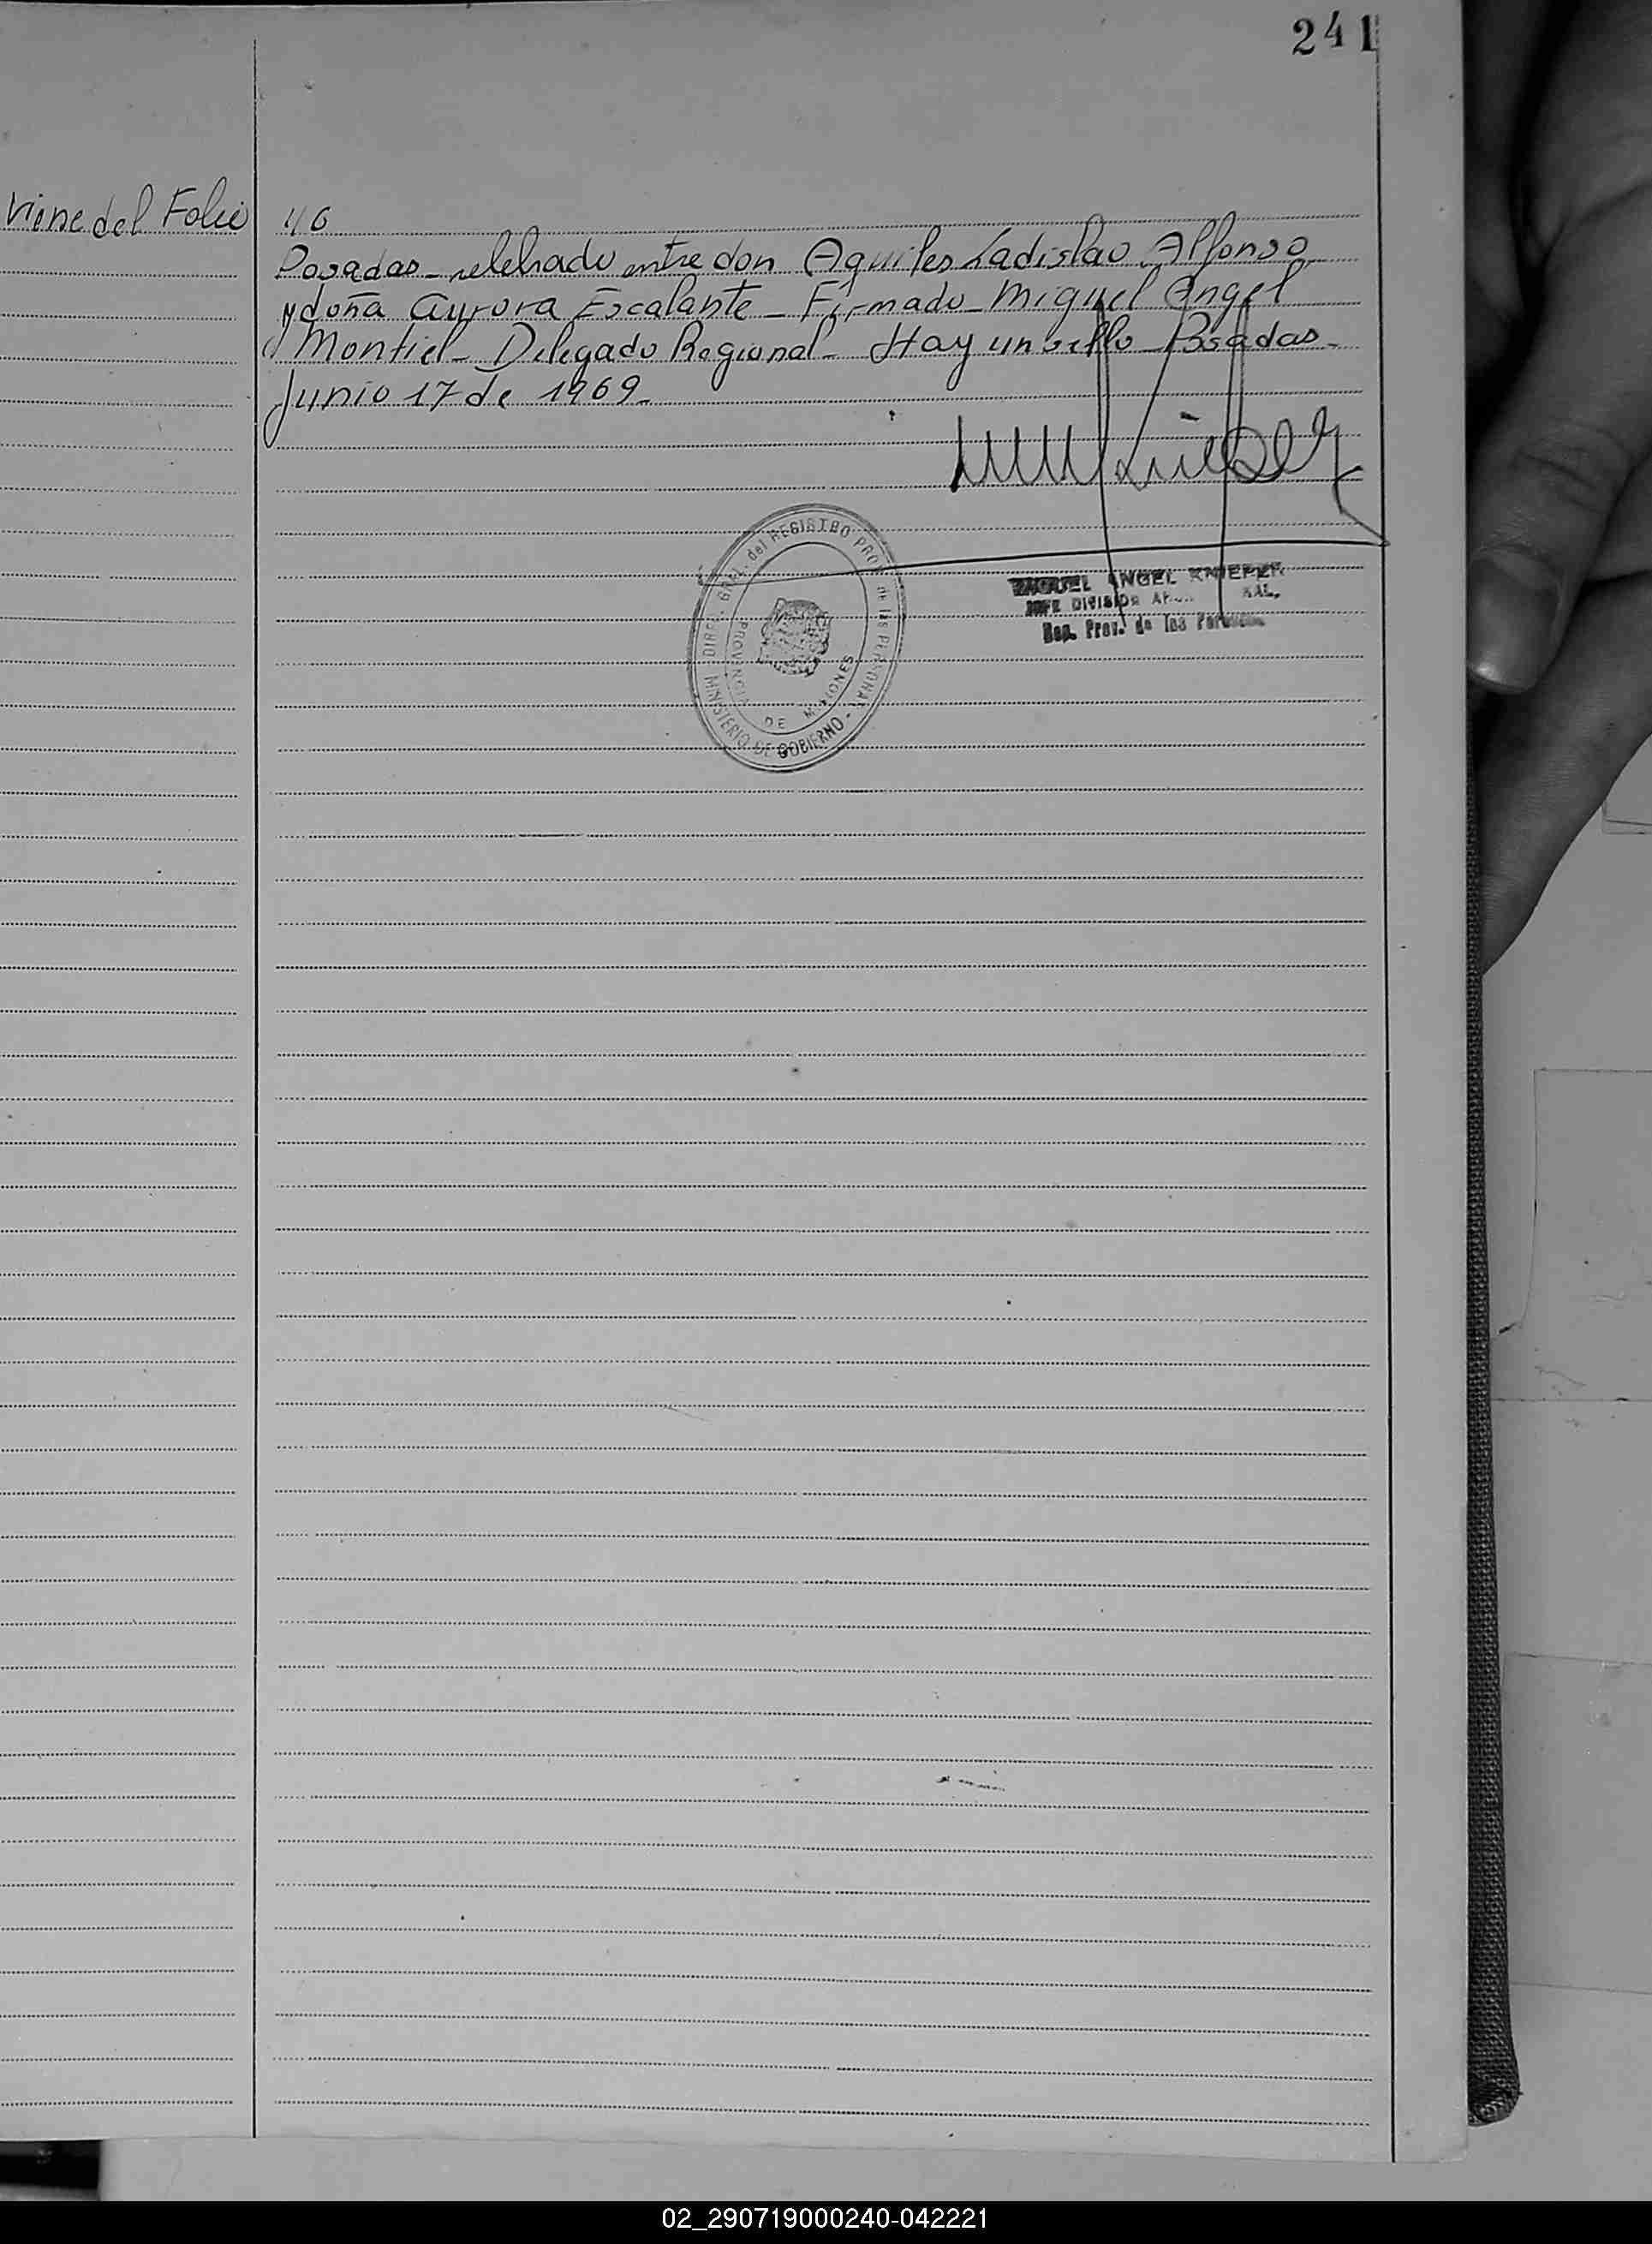 241
Viene del Folio 46
Posadas - celebrado entre don Aquiles Ladislao Alfonso
y doña Aurora Escalante - Firmado - Miguel Angel
Montiel - Delegado Regional - Hay un sello Posadas -
Junio 17 de 1969.
DIREC. GRAL. del REGISTRO PROV. de las PERSONAS
MINISTERIO DE GOBIERNO -
PROVINCIA DE MISIONES
MIGUEL ANGEL KNIEPER
JEFE DIVISION
Reg. Prov. de las Personas
02_290719000240-042221